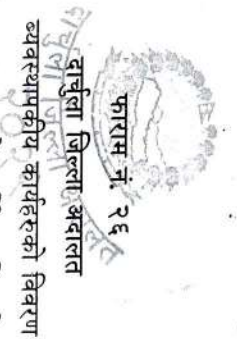 फाराम नं. २६
दार्चुला जिल्ला अदालत
व्यवस्थापकीय कार्यहरुको विवरण